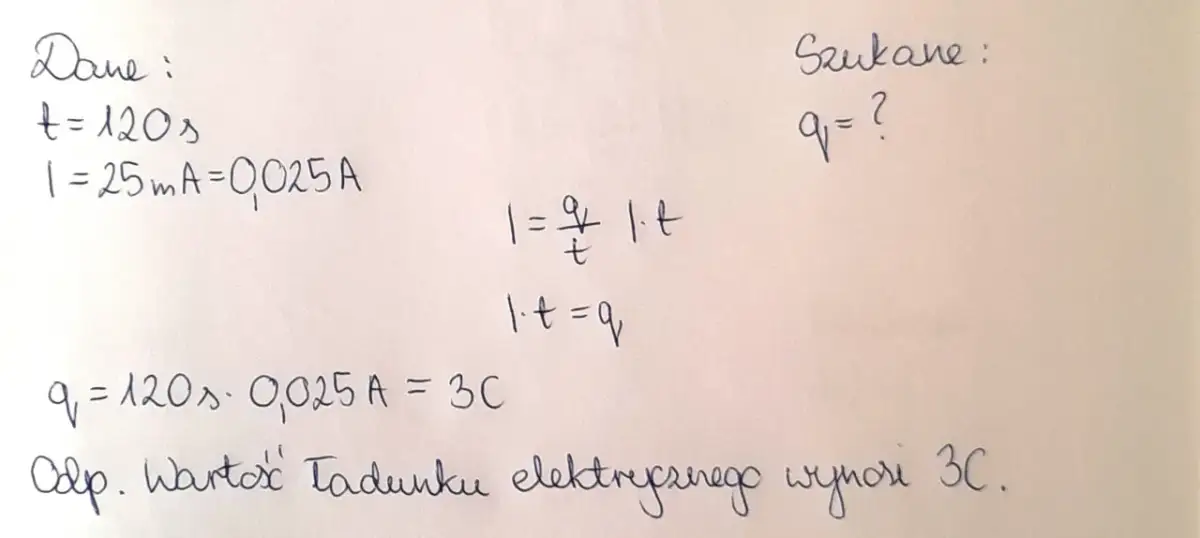 Dane:
Szukane:
t = 120s
q = ?
I = 25mA = 0,025A
I = q/t |·t
I·t = q
q = 120s · 0,025A = 3C
Odp. Wartość Ładunku elektrycznego wynosi 3C.